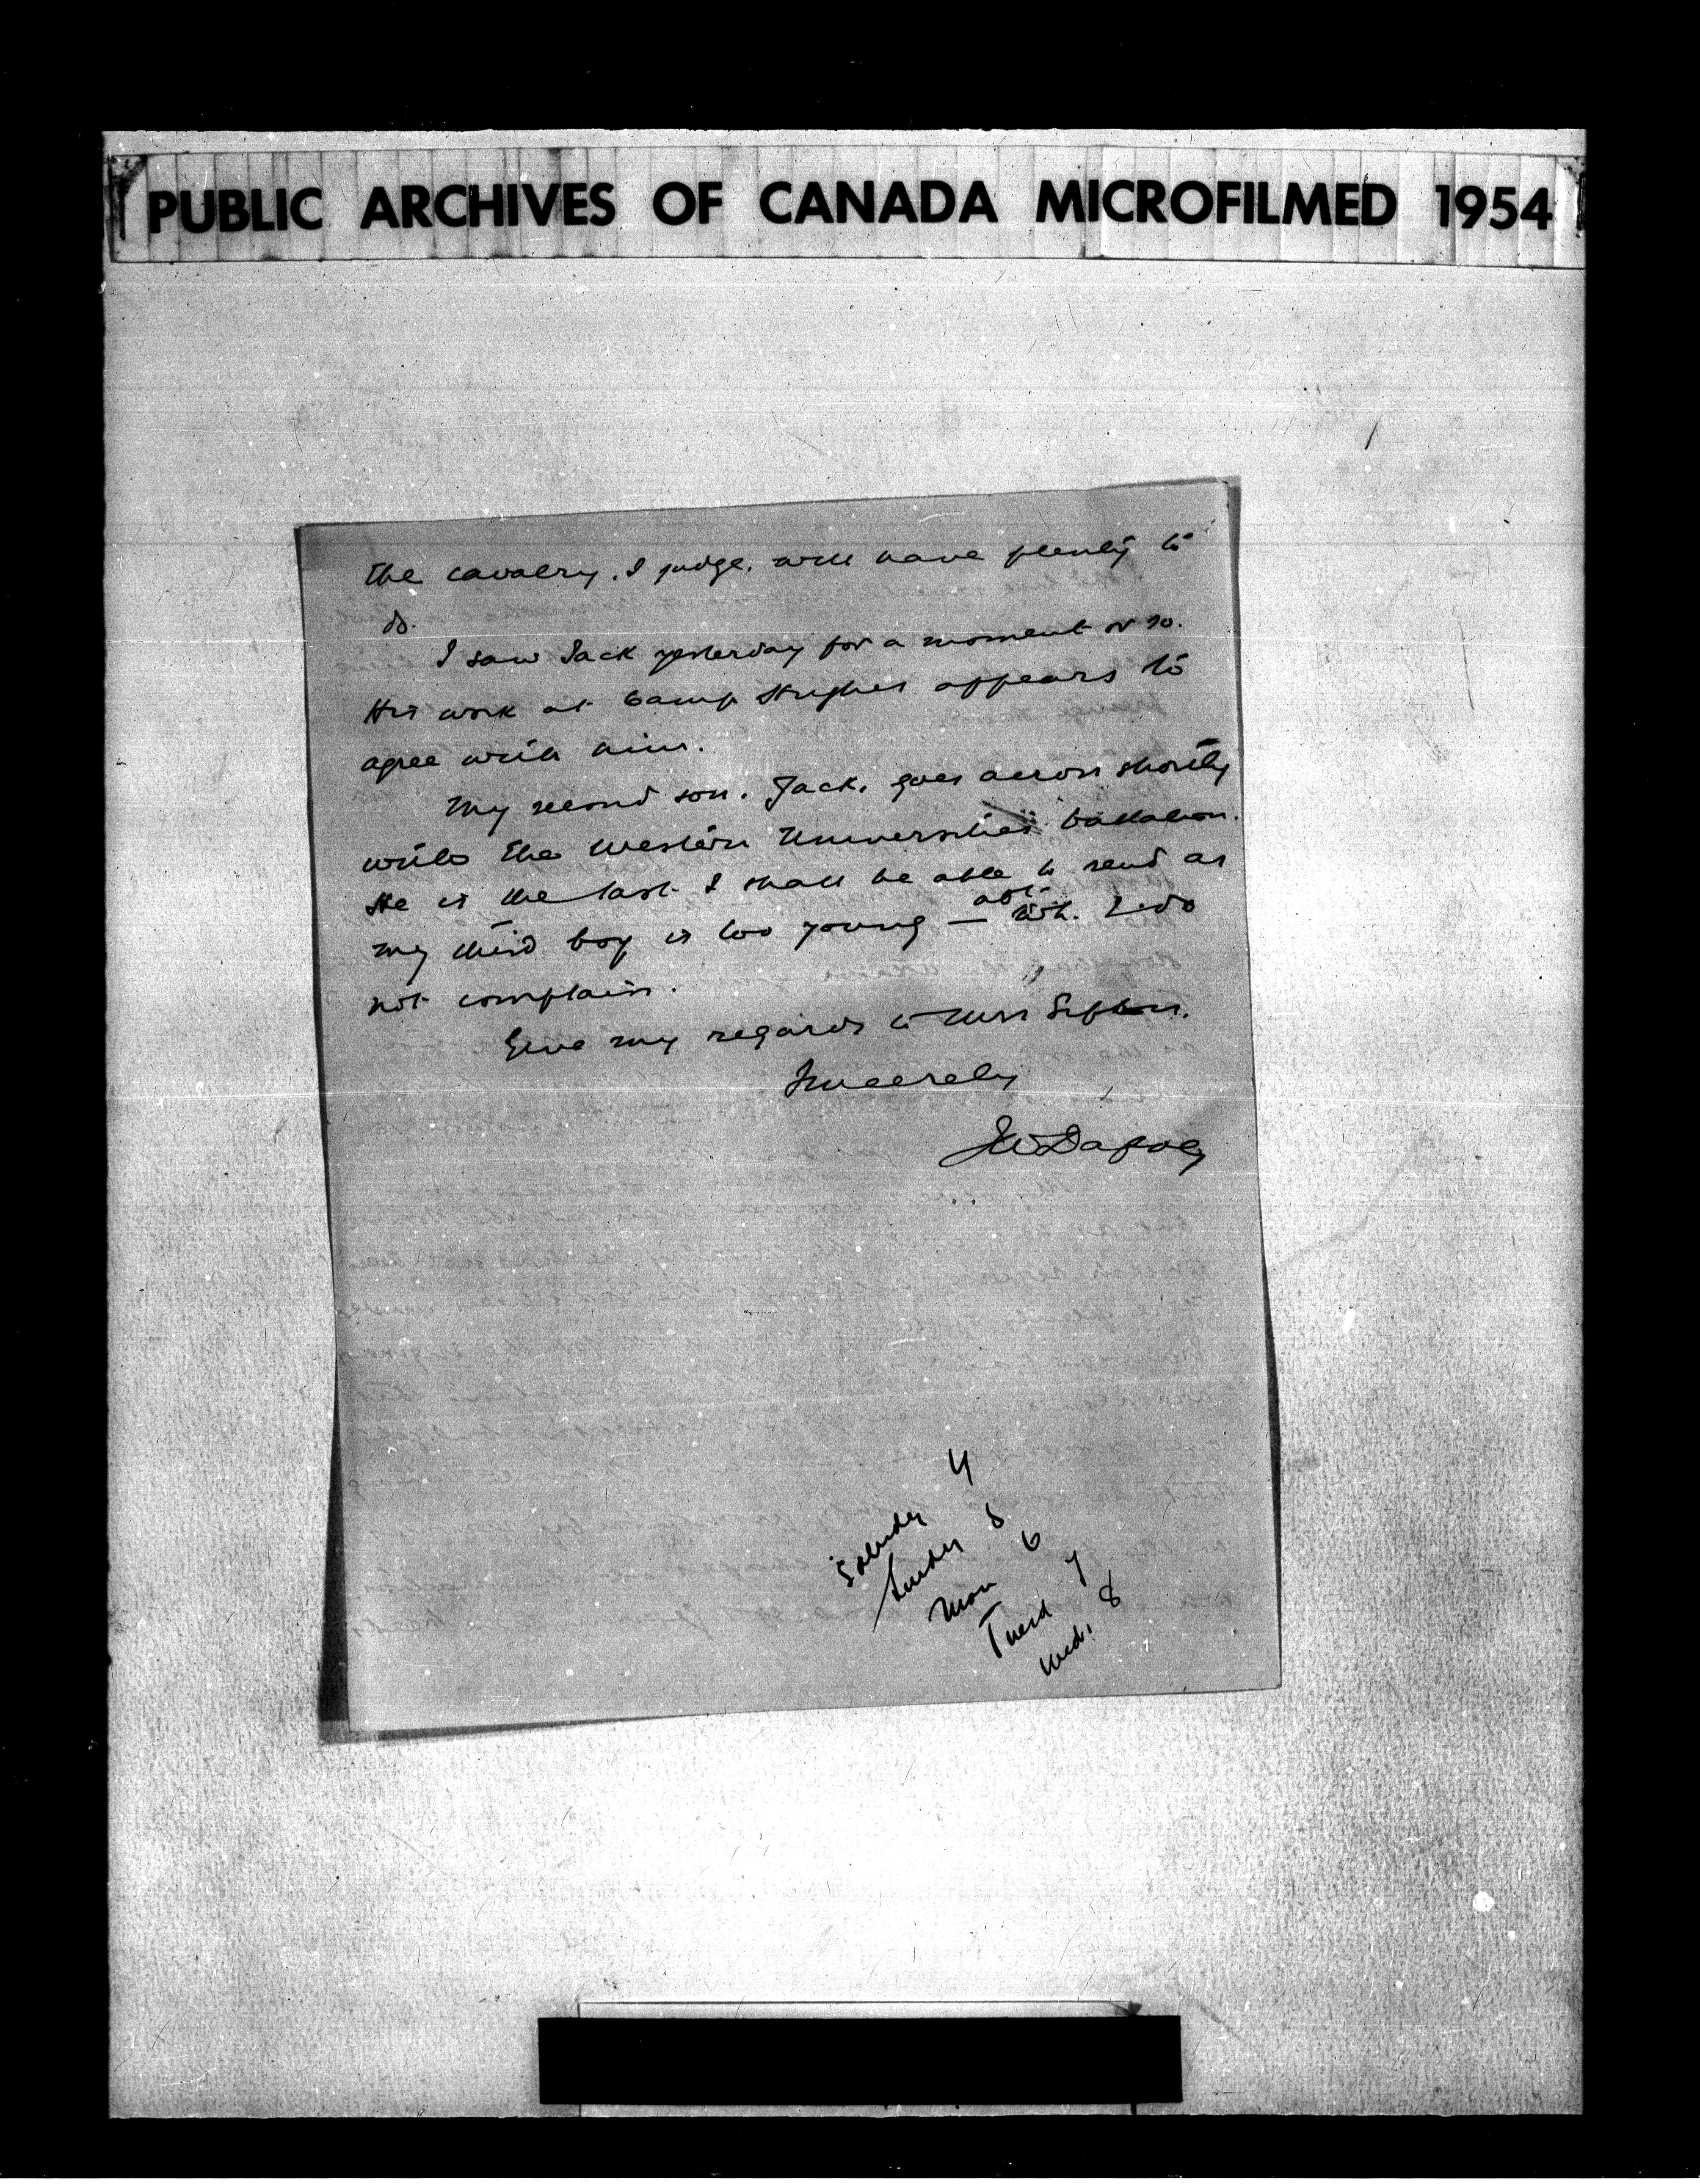 PUBLIC ARCHIVES OF CANADA MICROFILMED 1954
the cavalry, I judge, will have plenty to
do.
I saw Jack yesterday for a moment or so.
His work at Camp Hughes appears to
agree with him.
My second son, Jack, goes across shortly
with the Western Universities battalion.
He is the last I shall be able to send as
my third boy is too young — I do
not complain.
Give my regards to Mrs Sifton.
Sincerely
JW Dafoe
Saturday 4
Sunday 5
Mon 6
Tuesd 7
Wed. 8